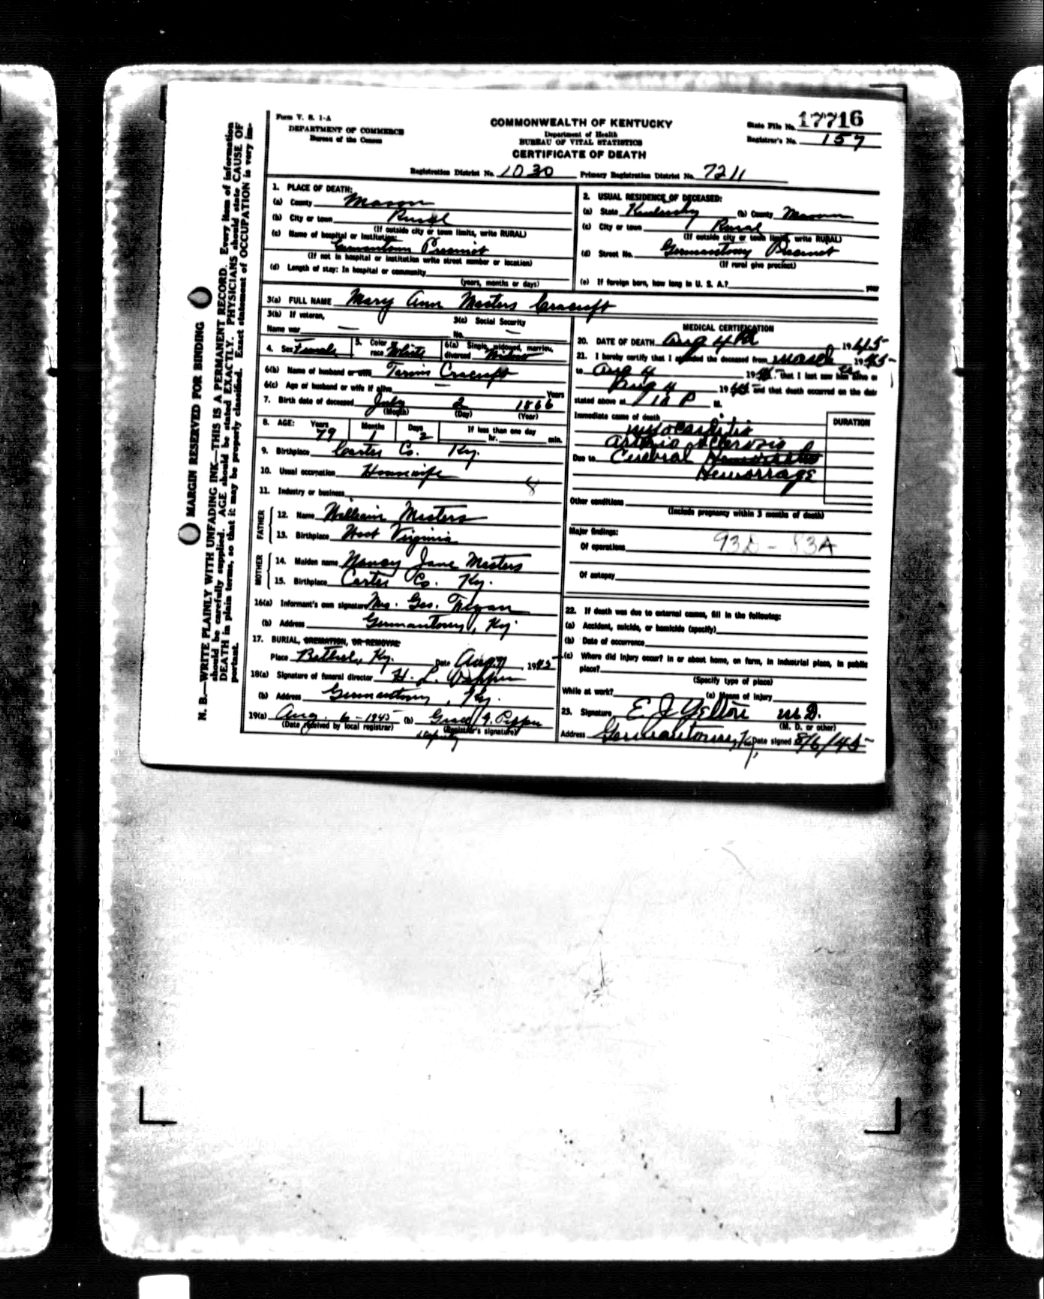 Form V. S. 1-A
DEPARTMENT OF COMMERCE
Bureau of the Census
COMMONWEALTH OF KENTUCKY
Department of Health
BUREAU OF VITAL STATISTICS
CERTIFICATE OF DEATH
State File No. 17716
Registrar's No. 157
Registration District No. 1030 Primary Registration District No. 7211
N. B.—WRITE PLAINLY WITH UNFADING INK—THIS IS A PERMANENT RECORD. Every item of information
should be carefully supplied. AGE should be stated EXACTLY. PHYSICIANS should state CAUSE OF
DEATH in plain terms, so that it may be properly classified. Exact statement of OCCUPATION is very im-
portant.
MARGIN RESERVED FOR BINDING
1. PLACE OF DEATH:
(a) County Mason
(b) City or town Rural
(If outside city or town limits, write RURAL)
(c) Name of hospital or institution
Germantown Precinct
(If not in hospital or institution write street number or location)
(d) Length of stay: In hospital or community
(years, months or days)
2. USUAL RESIDENCE OF DECEASED:
(a) State Kentucky (b) County Mason
(c) City or town Rural
(If outside city or town limits, write RURAL)
(d) Street No. Germantown Precinct
(If rural give precinct)
(e) If foreign born, how long in U. S. A.? year
3(a) FULL NAME Mary Ann Masters Cracraft
3(b) If veteran,
Name war —
3(c) Social Security
No. —
4. Sex Female 5. Color race White 6(a) Single, widowed, married, divorced
6(b) Name of husband or wife Cracraft
6(c) Age of husband or wife if alive — Years
7. Birth date of deceased July 2 1866
(Month) (Day) (Year)
8. AGE: Years 79 Months 1 Days 2 If less than one day
hr. min.
9. Birthplace Carter Co. Ky.
10. Usual occupation Housewife
8
11. Industry or business
FATHER
12. Name William Masters
13. Birthplace West Virginia
MOTHER
14. Maiden name Nancy Jane Masters
15. Birthplace Carter Co. Ky.
16(a) Informant's own signature Mrs. Geo.
(b) Address Germantown, Ky.
17. BURIAL, CREMATION, OR REMOVAL
Place Bethel, Ky. Date Aug 7, 1945
18(a) Signature of funeral director H. L.
(b) Address Germantown, Ky.
19(a) Aug. 6-1945 (b)
(Date received by local registrar) (Registrar's signature)
deputy
MEDICAL CERTIFICATION
20. DATE OF DEATH Aug 4th, 1945
21. I hereby certify that I attended the deceased from March 1945
to Aug 4 1945, that I last saw alive on
Aug 4 1945 and that death occurred on the date
stated above at P M.
Immediate cause of death
Myocarditis
Arterio Sclerosis
Due to Cerebral
Hemorrage
DURATION
Other conditions
(Include pregnancy within 3 months of death)
Major findings:
Of operations 93D - 83A
Of autopsy
22. If death was due to external causes, fill in the following:
(a) Accident, suicide, or homicide (specify)
(b) Date of occurrence
(c) Where did injury occur? In or about home, on farm, in industrial place, in public
place?
(Specify type of place)
While at work? (e) Means of injury
23. Signature E. J. M.D.
(M. D. or other)
Address Germantown, Ky Date signed 8/6/45